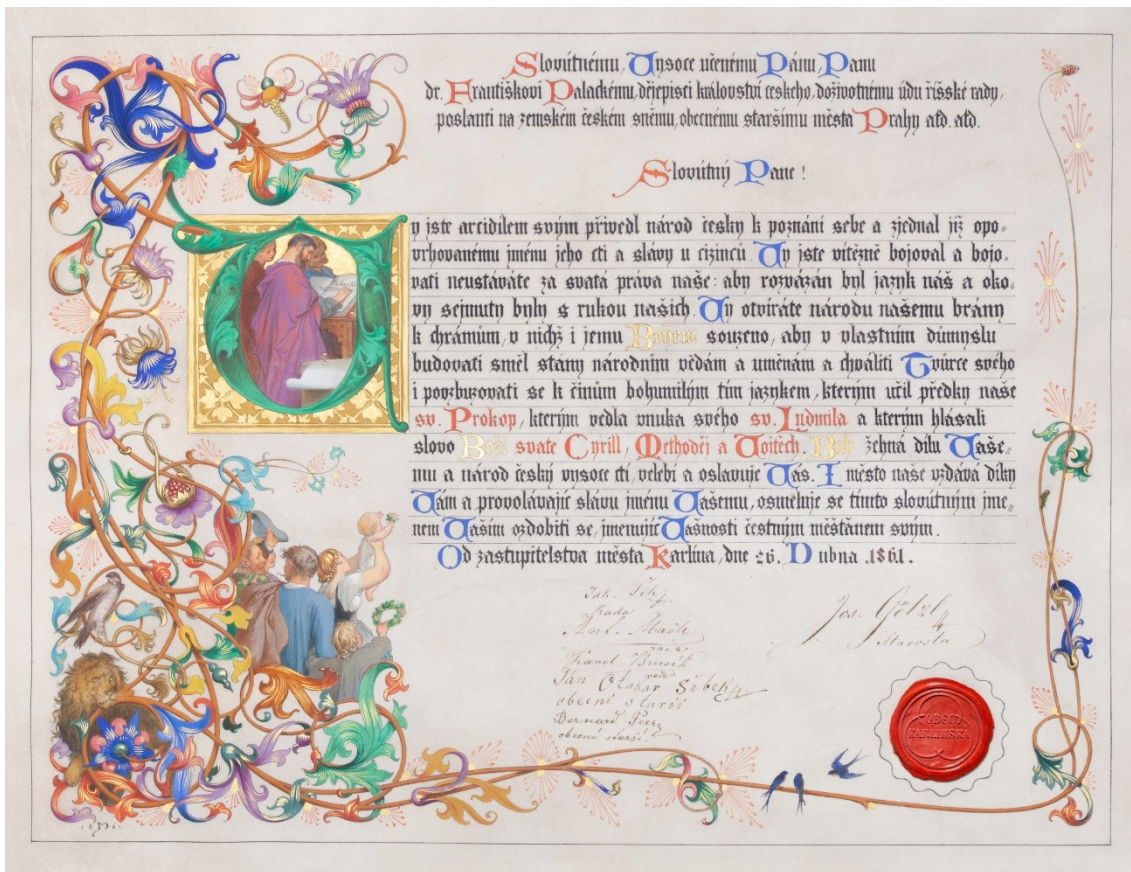 Slovútnému, Vysoce učenému Pánu, Panu
dr. Františkovi Palackému, dějepisci království českeho, doživotnému údu říšské rady,
poslanci na zemském českém sněmu, obecnému staršímu města Prahy atd. atd.
Slovútný Pane!
Vy jste arcidílem svým přivedl národ česky k poznání sebe a zjednal již opo-
vrhovanému jménu jeho cti a slávy u cizincu. Vy jste vítězně bojoval a bojo-
vati neustáváte za svatá práva naše: aby rozvázán byl jazyk náš a oko-
vy sejmuty byly s rukou našich. Vy otvíráte národu našemu brány
k chrámům, v nichž i jemu Bohem souzeno, aby v vlastním důmyslu
budovati směl stany národním vědám a uměnám a chváliti Tvůrce svého
i povzbuzovati se k činům bohumilým tím jazykem, kterým učil předky naše
sv. Prokop, kterým vedla vnuka svého sv. Ludmila a kterým hlásali
slovo Boží svate Cyrill, Methoděj a Vojtěch. Bůh žehná dílu Vaše-
mu a národ český vysoce ctí, velebí a oslavuje Vás. I město naše vzdává díky
Vám a provolávajíc slávu jménu Vašemu, osmeluje se tímto slovútným jme-
nem Vaším ozdobiti se, jmenujíc Vašnosti čestným měštanem svým.
Od zastupitelstva města Karlína, dne 26. Dubna 1861.
Jos. Götzl
Starosta
Rada
Ant.
rada
Karel
Jan Otakar Šebek
obecní starší
Bernard
obecní starší
OBECŮ
KARLINSKÁ